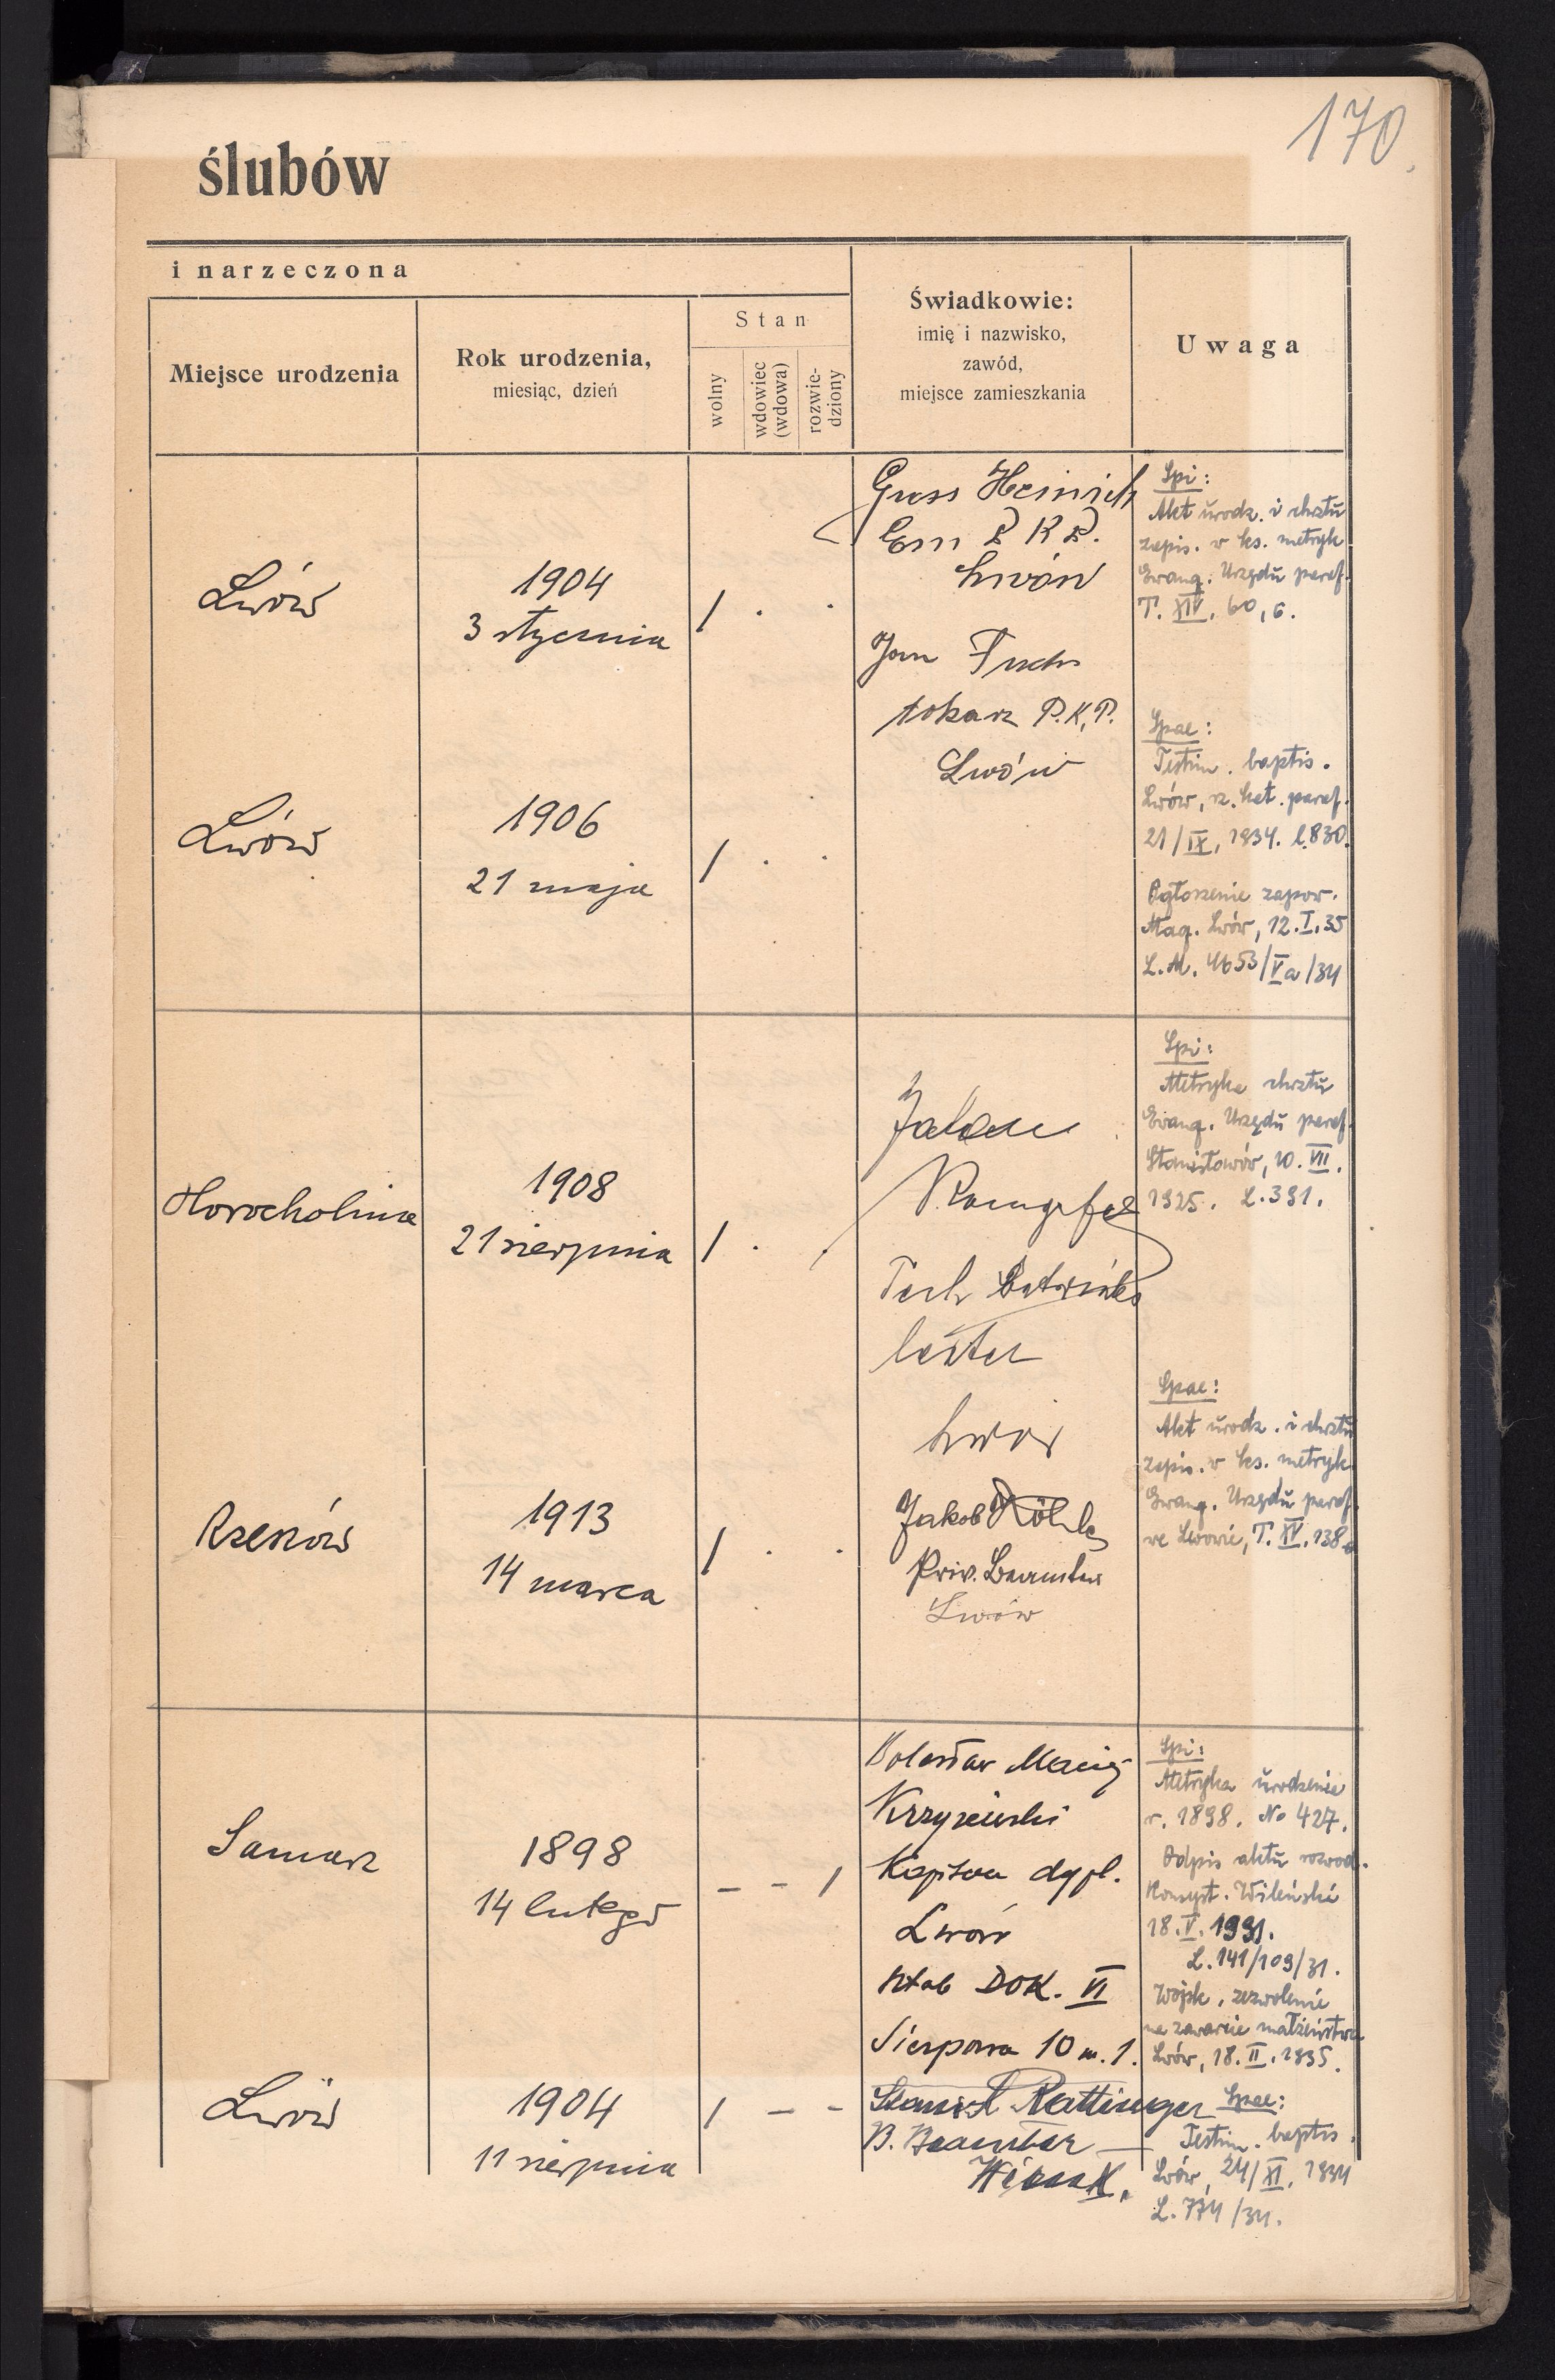 170.
ślubów
i narzeczona
Miejsce urodzenia
Rok urodzenia,
miesiąc, dzień
Stan
wolny
wdowiec
(wdowa)
rozwie-
dziony
Świadkowie:
imię i nazwisko,
zawód,
miejsce zamieszkania
Uwaga
Lwów
1904
3 stycznia
/ . .
Gross Heinrich
Em P K P.
Lwów
Jan Fuchs
tokarz P.K.P.
Lwów
Spi:
Akt urodz. i chrztu
zapis. w ks. metryk
Ewang. Urzędu paraf.
T. XIV, 60, 6.
Lwów
1906
21 maja
/ . .
Spae:
Testim. baptis.
Lwów, rz. kat. paraf.
21/IX, 1934. l.830.
Ogłoszenie zapow.
Mag. Lwów, 12.I.35
L.M. 4653/Va/34
Horocholina
1908
21 sierpnia
/ . .
Jakob
Tech Betriebs
leiter
Lwów
Spi:
Metryka chrztu
Ewang. Urzędu paraf.
Stanisławów, 10. VII.
1925. L.391.
Rzeszów
1913
14 marca
/ . .
Jakob Köhle
Priv. Beamter
Lwów
Spae:
Akt urodz. i chrztu
zapis. w ks. metryk
Ewang. Urzędu paraf.
we Lwowie, T. XV, 138
1898
14 lutego
– – /
Bolesław Maciej
Krzyżewski
Kapitan dypl.
Lwów
sztab DOK. VI
10 m. 1.
Spi:
Metryka urodzenia
r. 1898. No 427.
Odpis aktu rozwod.
Konsyst. Wileński
18.V.1931.
L.141/109/31.
Wojsk. zezwolenie
na zawarcie małżeństwa
Lwów, 18.II.1935.
Lwów
1904
11 sierpnia
/ – –
Stanisł Rattinger
B. Beamter —
Spae:
Testim. baptis.
Lwów, 24/XI, 1934
L.774/34.